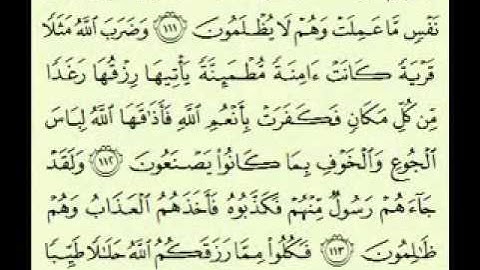 نَفۡسٖ مَّا عَمِلَتۡ وَهُمۡ لَا يُظۡلَمُونَ ١١١ وَضَرَبَ ٱللَّهُ مَثَلٗا
قَرۡيَةٗ كَانَتۡ ءَامِنَةٗ مُّطۡمَئِنَّةٗ يَأۡتِيهَا رِزۡقُهَا رَغَدٗا
مِّن كُلِّ مَكَانٖ فَكَفَرَتۡ بِأَنۡعُمِ ٱللَّهِ فَأَذَٰقَهَا ٱللَّهُ لِبَاسَ
ٱلۡجُوعِ وَٱلۡخَوۡفِ بِمَا كَانُواْ يَصۡنَعُونَ ١١٢ وَلَقَدۡ
جَآءَهُمۡ رَسُولٞ مِّنۡهُمۡ فَكَذَّبُوهُ فَأَخَذَهُمُ ٱلۡعَذَابُ وَهُمۡ
ظَٰلِمُونَ ١١٣ فَكُلُواْ مِمَّا رَزَقَكُمُ ٱللَّهُ حَلَٰلٗا طَيِّبٗا